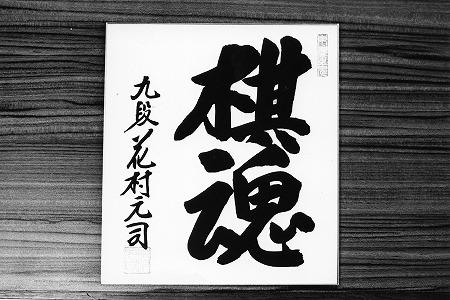 棋魂
九段花村元司